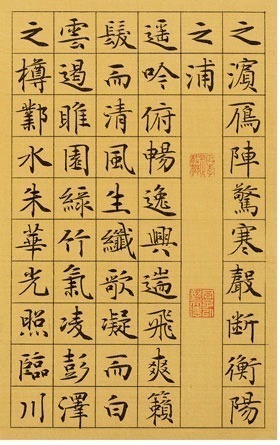 之濱鴈陣驚寒聲断衡陽
之浦
遥吟俯暢逸興遄飛爽籟
發而清風生纖歌凝而白
雲遏睢園綠竹氣凌彭澤
之樽鄴水朱華光照臨川